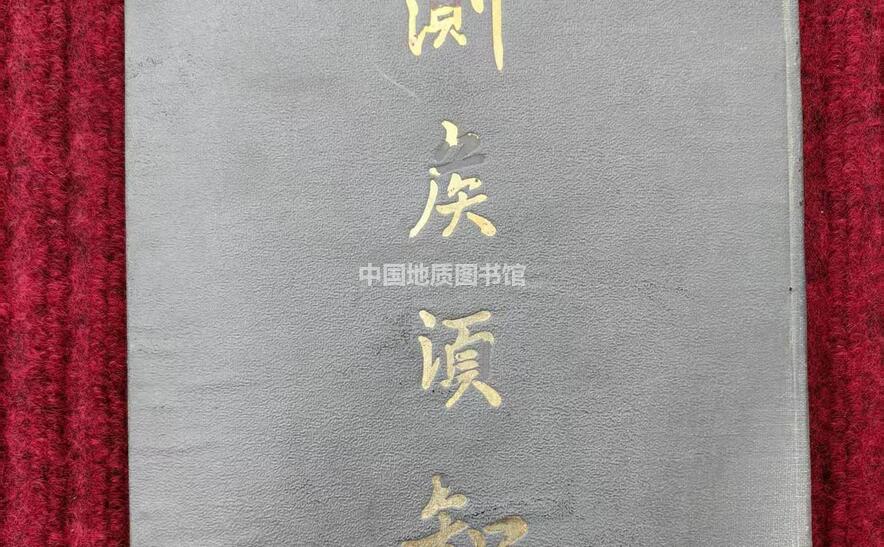 測矦湏知
中国地质图书馆